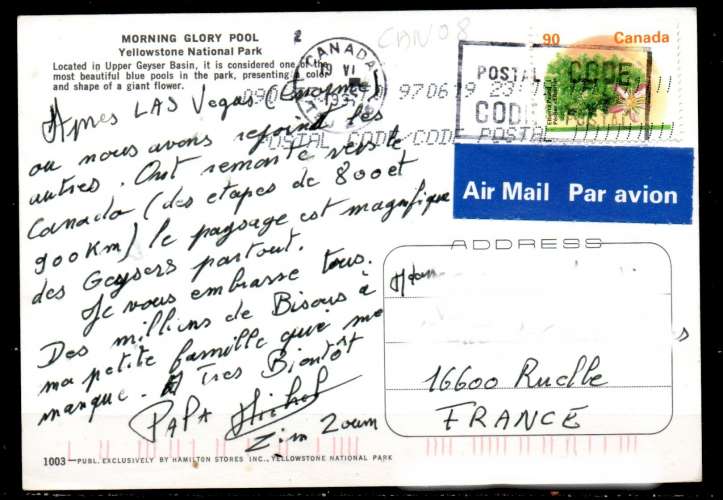 MORNING GLORY POOL
Yellowstone National Park
Located in Upper Geyser Basin, it is considered one of the
most beautiful blue pools in the park, presenting a color
and shape of a giant flower.
Apres LAS Vegas (Enorme)
ou nous avons rejoind les
autres. Ont remonte vers le
Canada (des etapes de 800 et
900 Km) le paysage est magnifique
des Geysers partout.
Je vous embrasse tous.
Des milliers de Bisous à
ma petite famille qui me
manque. A Tres Bientôt
PAPA Michel
Zim Zoum
1003—PUBL. EXCLUSIVELY BY HAMILTON STORES INC., YELLOWSTONE NATIONAL PARK
CAN 08
CANADA
VI
970619 23
POSTAL CODE/CODE POSTAL
POSTAL CODE
CODE POSTAL
90 Canada
Air Mail Par avion
ADDRESS
16600 Ruelle
FRANCE